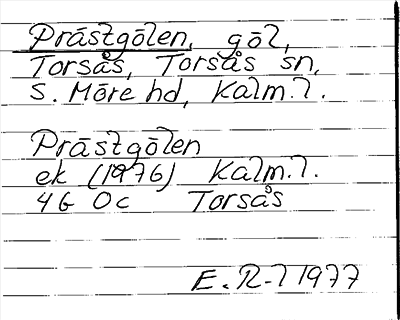 Prästgölen, göl,
Torsås, Torsås sn,
S. Möre hd, Kalm. l.
Prästgölen
ek (1976) Kalm. l.
4G 0c Torsås
E. R-l 1977